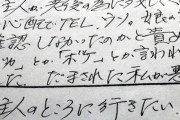 主人が、老後の為に
心配でTEL、ウソ。娘が
確認しなかったのかと責め
とか「ボケ」とか言われ
だまされた私が悪
主人のところに行きたい